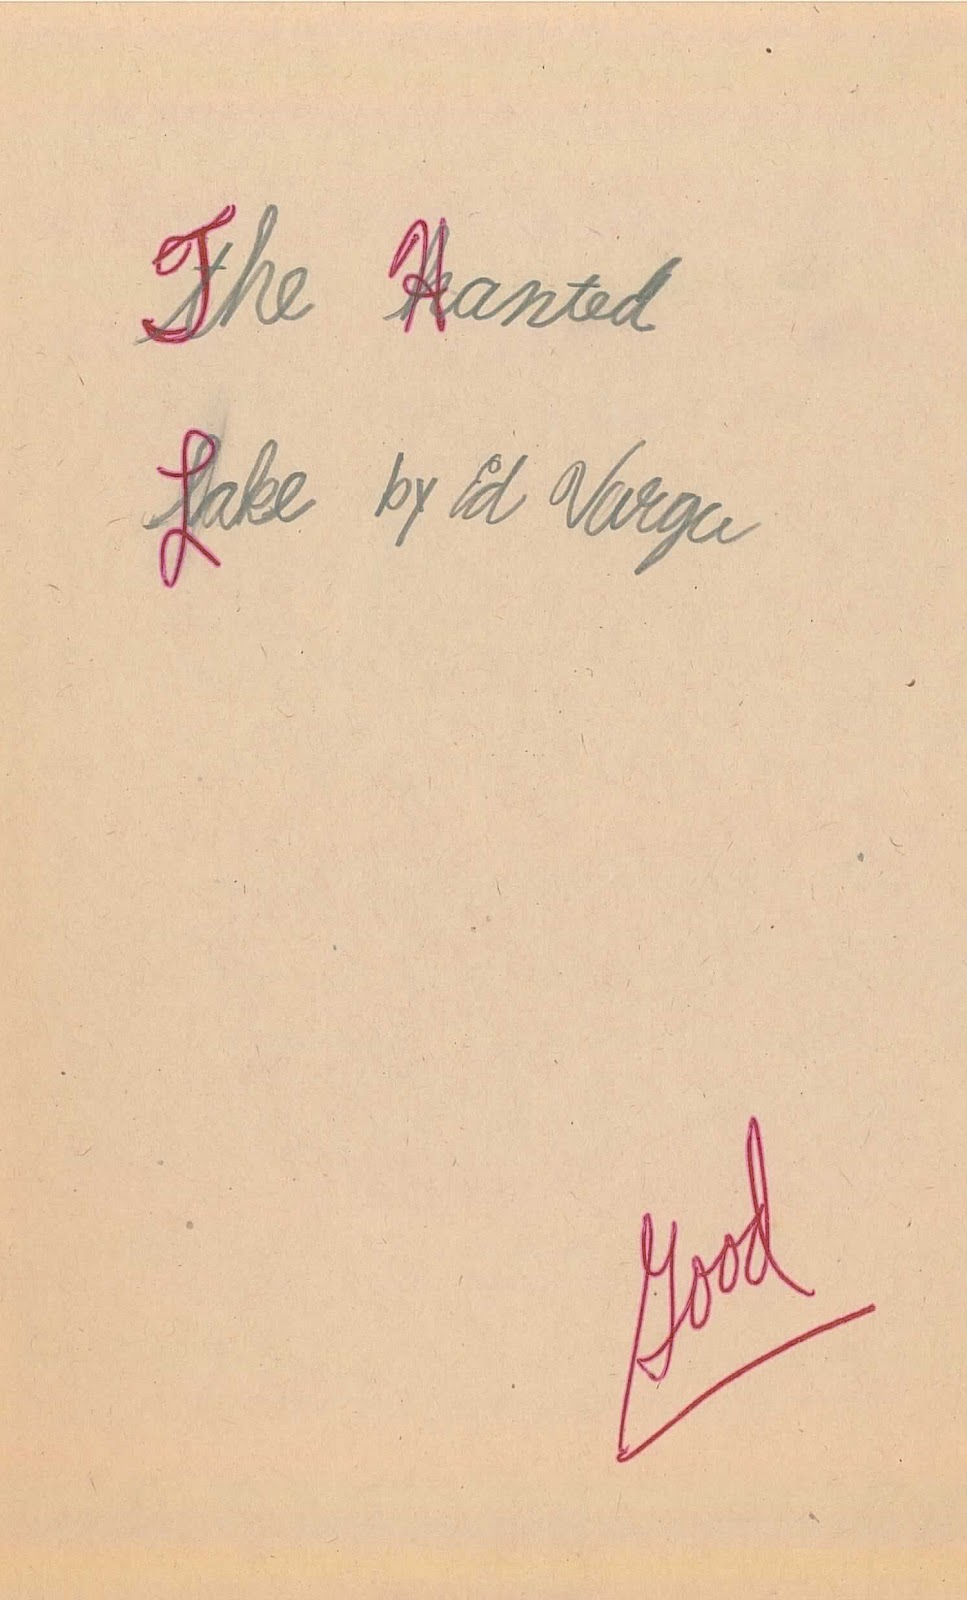 The Hanted
Lake by Ed Varga
Good